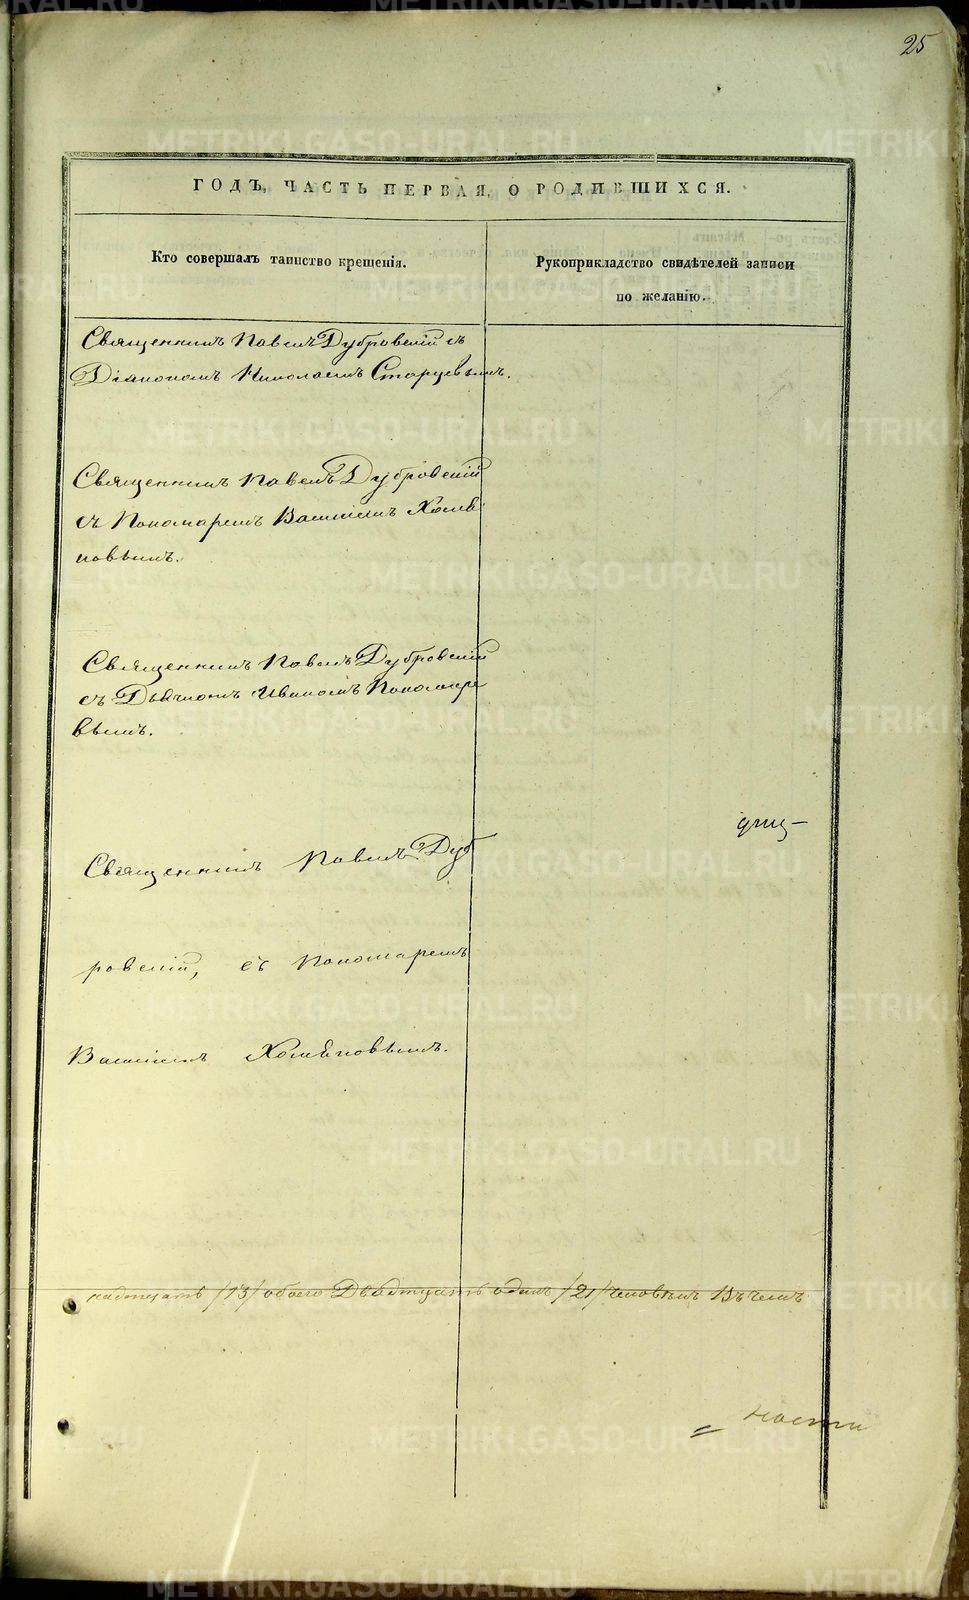 25
ГОДЪ, ЧАСТЬ ПЕРВАЯ, О РОДИВШИХСЯ.
Кто совершалъ таинство крещенія.
Рукоприкладство свидѣтелей записи
по желанію.
Священникъ Павелъ Дубровскій съ
Діакономъ Николаемъ Старцевымъ.
Священникъ Павелъ Дубровскій
съ Пономаремъ Василіемъ Хомя
ковымъ.
Священникъ Павелъ Дубровскій
съ Дьячкомъ Иваномъ Пономаре
вымъ.
Священникъ Павелъ Дуб
ровскій, съ Пономаремъ
Василіемъ Хомяковымъ.
надцать /13/ обоего Двадцать одинъ /21/ человѣкъ Въ чемъ
METRIKI.GASO-URAL.RU